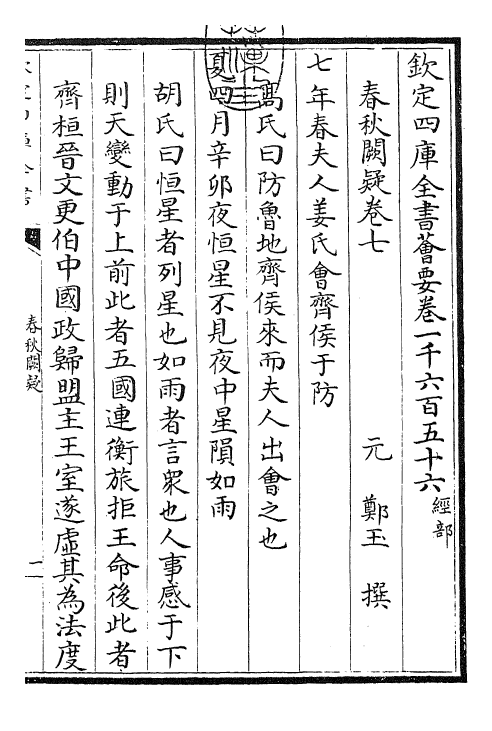 欽定四庫全書薈要卷一千六百五十六 經部
春秋闕疑卷七 元 鄭玉 撰
七年春夫人姜氏會齊侯于防
髙氏曰防魯地齊侯來而夫人出會之也
夏四月辛卯夜恒星不見夜中星隕如雨
胡氏曰恒星者列星也如雨者言衆也人事感于下
則天變動于上前此者五國連衡旅拒王命後此者
齊桓晉文更伯中國政歸盟主王室遂虚其為法度
春秋闕疑